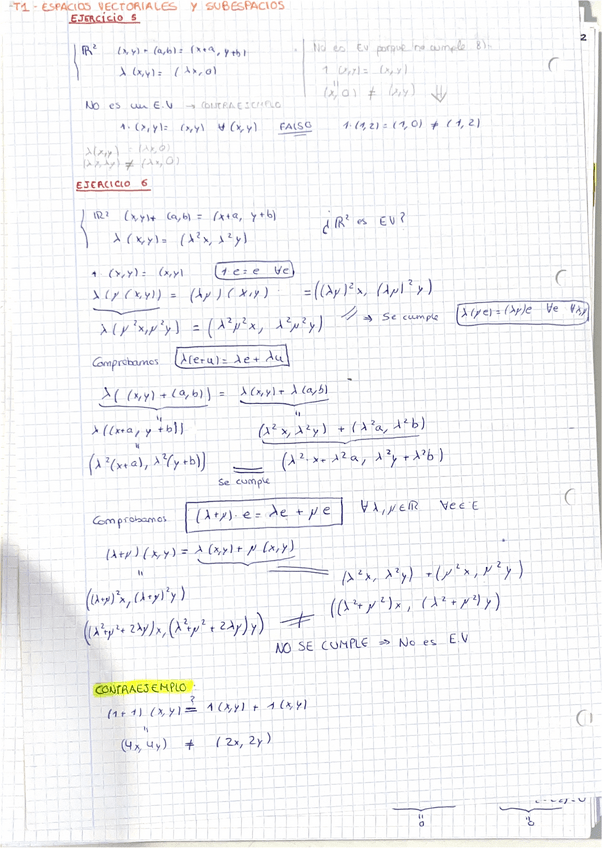 T1 - ESPACIOS VECTORIALES Y SUBESPACIOS
EJERCICIO 5
2
ℝ² (x,y)+(a,b)=(x+a, y+b)
λ(x,y)= (λx,0)
No es EV porque no cumple 8)
1·(x,y)=(x,y)
(x,0) ≠ (x,y)
No es un E.V → CONTRAEJEMPLO
1·(x,y)=(x,y) ∀(x,y) FALSO 1·(1,2)=(1,0) ≠ (1,2)
λ(x,y) = (λx,0)
(λx,λy) ≠ (λx,0)
EJERCICIO 6
ℝ² (x,y)+(a,b)=(x+a, y+b)
λ(x,y)=(λ²x, λ²y)
¿ℝ² es EV?
1·(x,y)=(x,y) 1e=e ∀e
λ(μ(x,y)) = (λμ)(x,y) =((λμ)²x, (λμ)²y)
λ(μ²x,μ²y) = (λ²μ²x, λ²μ²y) ⇒ Se cumple λ(μe)=(λμ)e ∀e ∀λμ
Comprobamos λ(e+u)=λe+λu
λ((x,y)+(a,b)) = λ(x,y)+λ(a,b)
λ((x+a, y+b)) (λ²x,λ²y)+(λ²a,λ²b)
(λ²(x+a),λ²(y+b)) = (λ²·x+λ²a, λ²y+λ²b)
Se cumple
Comprobamos (λ+μ)·e = λe+μe ∀λ,μ∈ℝ ∀e∈E
(λ+μ)(x,y) = λ(x,y)+μ(x,y)
= (λ²x, λ²y)+(μ²x, μ²y)
((λ+μ)²x,(λ+μ)²y)
((λ²+μ²+2λμ)x,(λ²+μ²+2λμ)y) ≠ ((λ²+μ²)x, (λ²+μ²)y)
NO SE CUMPLE ⇒ No es E.V
CONTRAEJEMPLO
(1+1)(x,y) =? 1(x,y)+1(x,y)
(4x,4y) ≠ (2x,2y)